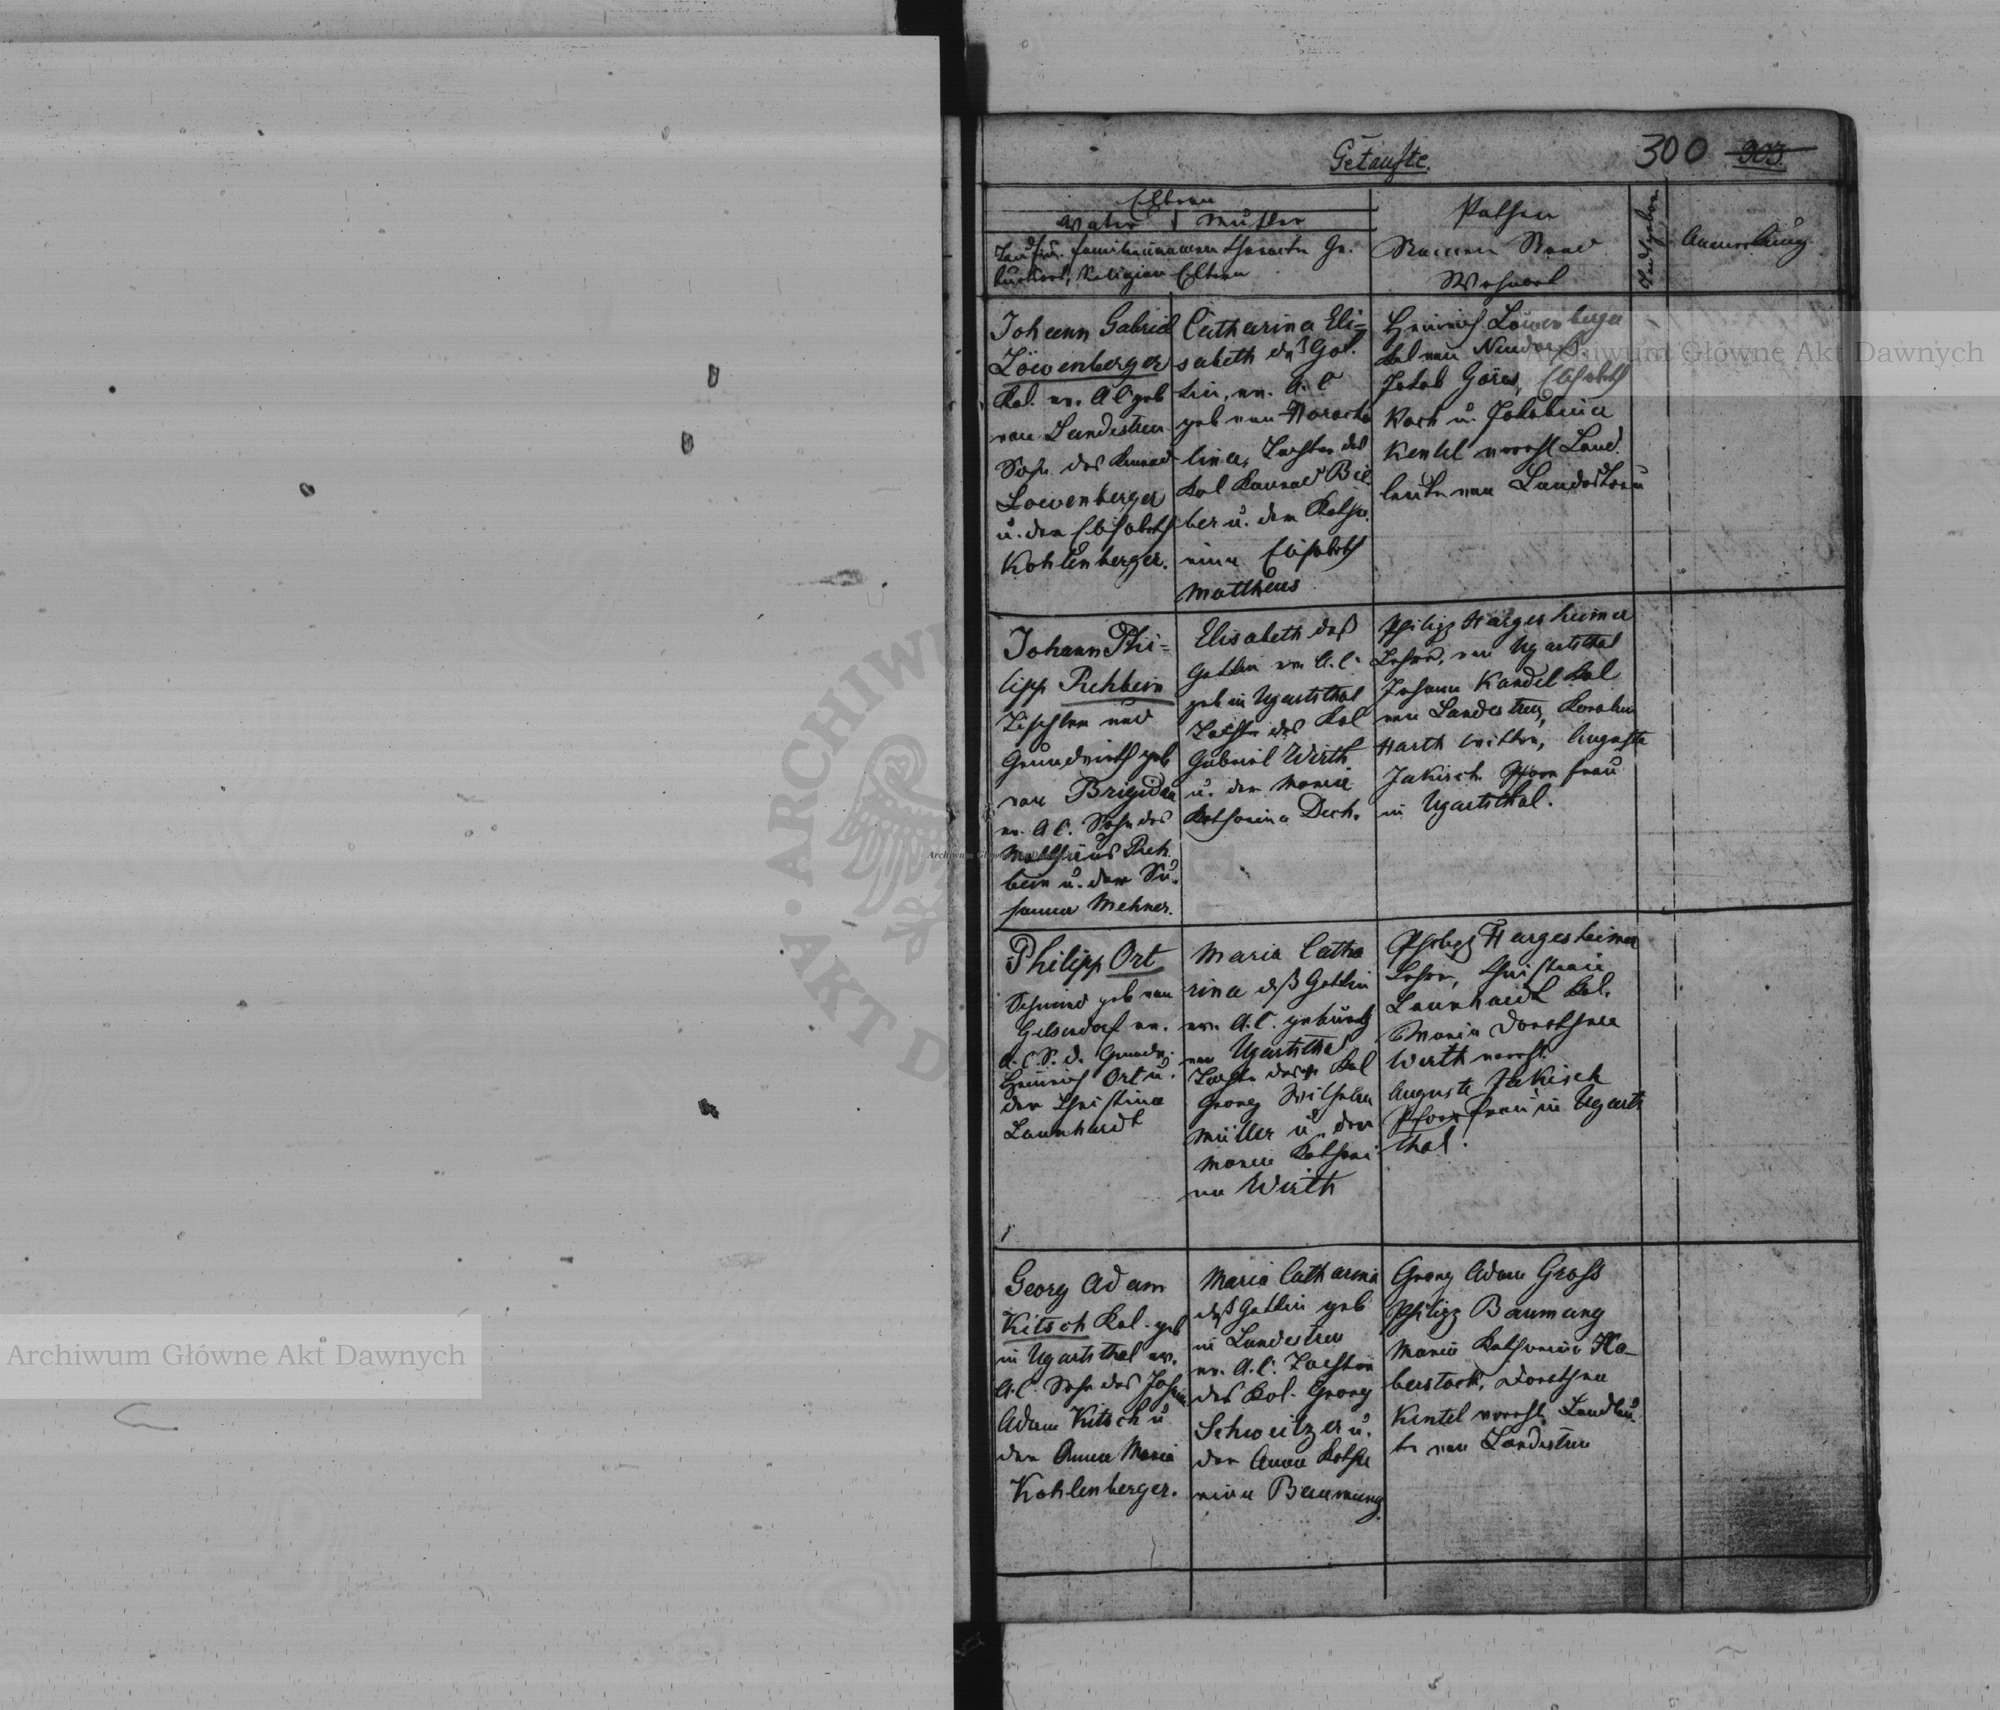 Getaufte.
300 303.
Eltern
Vater Mutter
Tauf u. Familiennamen Charakter Ge-
burtsort, Religion Eltern
Pathen
Namen Stand
Wohnort
Anmerkung
Johann Gabriel
Löwenberger
Kol. ev. A C geb
von Landestreu
Sohn des Konrad
Loewenberger
u. der Elisabeth
Kohlenberger.
Catharina Eli=
sabeth deß Gat-
tin, ev. A. C
geb von Horocho
lina, Tochter des
Kol Konrad Bie
ber u. der Katha-
rina Elisabeth
Mattheus
Heinrich Löwenberger
Kol von Neudorf,
Jakob Göres, Elisabeth
Koch u. Jakobina
Kentel vereh. Land
leute von Landestreu
Johann Phi=
lipp Rehbein
Tischler und
Grundwirth geb
von Brigidau
ev. A C. Sohn des
Matthäus Reh
bein u. der Su-
sanna Mehner.
Elisabeth deß
Gattin ev A. C.
geb in Ugartsthal
Tochter des Kol
Gabriel Wirth
u. der Maria
Katharina Dech.
Philipp Hargesheimer
Lehrer, von Ugartsthal
Johann Kandel Kol
von Landestreu, Karolina
Harth Auguste
Jakisch Pfarrfrau
in Ugartsthal.
Philipp Ort
Schmied geb von
Gelsendorf ev.
A. C. S. d. Grundw.
Heinrich Ort u.
der Christina
Launhardt
Maria Catha
rina deß Gattin
ev. A. C. gebürtig
von Ugartsthal
Tochter des Kol
Georg Wilhelm
Müller u. der
Maria Kathari
na Wirth
Philipp Hargesheimer
Lehrer, Christian
Launhardt Kol.
Maria Dorothea
Wirth vereh.
Auguste Jakisch
Pfarrfrau in Ugarts
thal.
Georg Adam
Kitsch Kol. geb
in Ugartsthal ev.
A. C. Sohn des Johann
Adam Kitsch u
der Anna Maria
Kohlenberger.
Maria Catharina
deß Gattin geb
in Landestreu
ev. A. C. Tochter
des Kol. Georg
Schweitzer u.
der Anna Katha
rina Baumung
Georg Adam Gross
Philipp Baumung
Maria Katharina Ha-
berstock, Dorothea
Kentel vereh. Landleu-
te von Landestreu
Archiwum Główne Akt Dawnych
Archiwum Główne Akt Dawnych